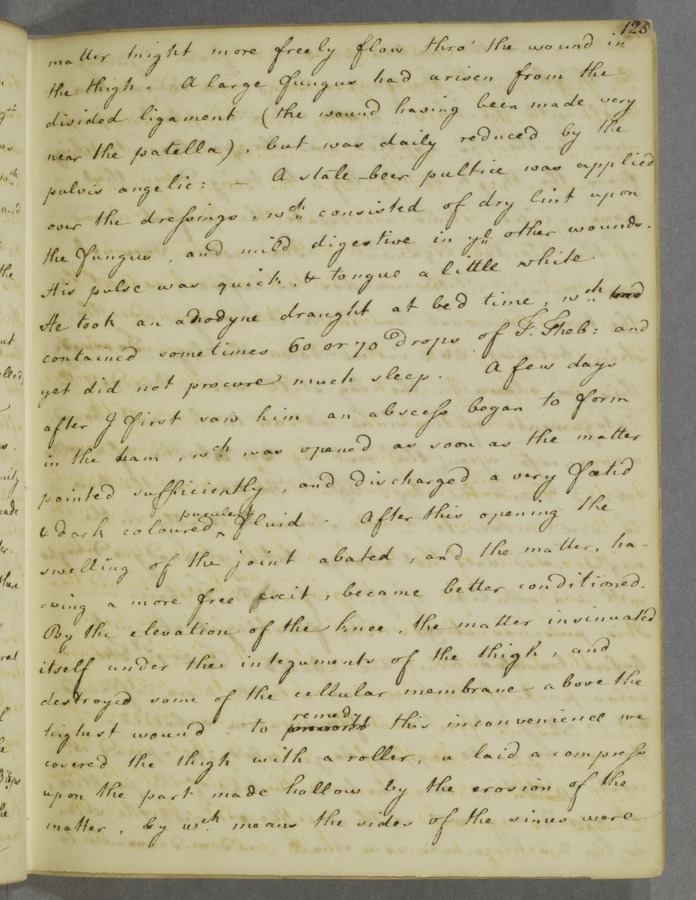 125
matter might more freely flow thro' the wound in
the thigh. A large fungus had arisen from the
divided ligament (the wound having been made very
near the patella), but was daily reduced by the
pulvis angelic: – A stale-beer pultice was applied
over the dressings, wch consisted of dry lint upon
the fungus, and mild digestive in ye other wounds.
His pulse was quick, & tongue a little white
He took an anodyne draught at bed time, wch
contained sometimes 60 or 70 drops of T. Theb: and
yet did not procure much sleep. A few days
after I first saw him an abscess began to form
in the ham, wch was opened as soon as the matter
pointed sufficiently, and discharged a very fœtid
& dark coloured purulent fluid. After this opening the
swelling of the joint abated, and the matter, ha-
-ving a more free exit, became better conditioned.
By the elevation of the knee, the matter insinuated
itself under the integuments of the thigh, and
destroyed some of the cellular membrane above the
highest wound: to remedy this inconvenience we
covered the thigh with a roller, & laid a compress
upon the part made hollow by the erosion of the
matter, by wch means the sides of the sinus were